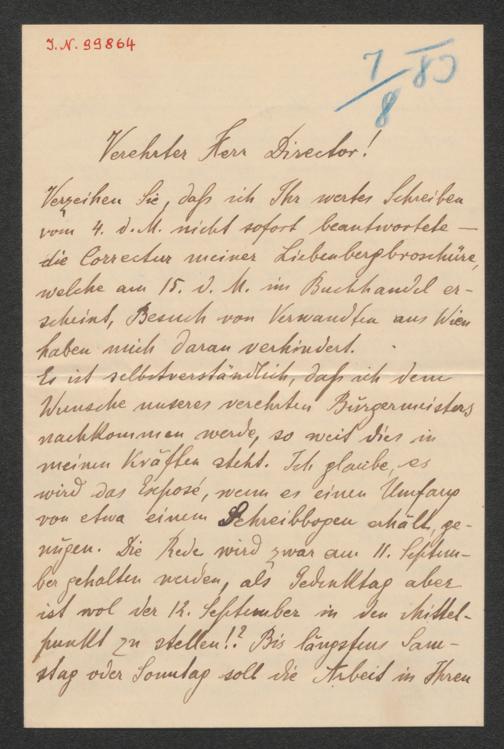 J. N. 99864
7/8 83
Verehrter Herr Director!
Verzeihen Sie, daß ich Ihr wertes Schreiben
vom 4. d. M. nicht sofort beantwortete —
die Correctur meiner Liebenbergbroschüre,
welche am 15. d. M. im Buchhandel er-
scheint, Besuch von Verwandten aus Wien
haben mich daran verhindert.
Es ist selbstverständlich, daß ich dem
Wunsche unseres verehrten Bürgermeisters
nachkommen werde, so weit dies in
meinen Kräften steht. Ich glaube, es
wird das Exposé, wenn es einen Umfang
von etwa einem Schreibbogen erhält, ge-
nügen. Die Rede wird zwar am 11. Septem-
ber gehalten werden, als Gedenktag aber
ist wol der 12. September in den Mittel-
punkt zu stellen!? Bis längstens Sam-
stag oder Sonntag soll die Arbeit in Ihren